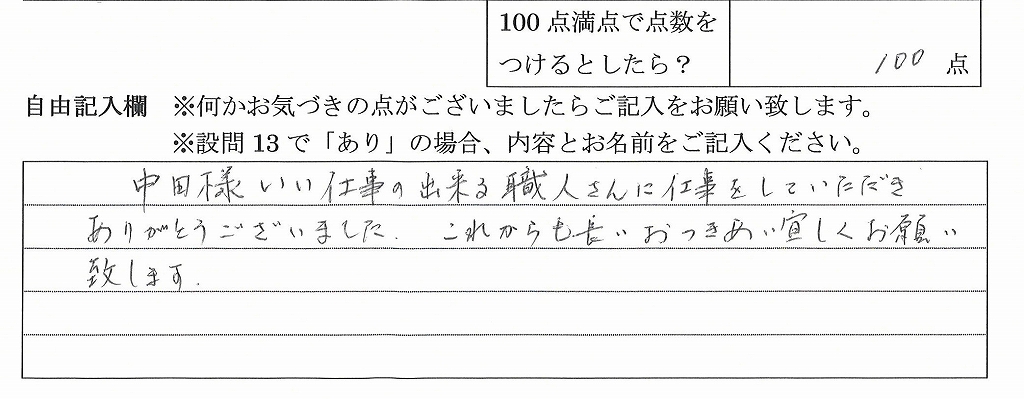 100点満点で点数を
つけるとしたら？
100 点
自由記入欄 ※何かお気づきの点がございましたらご記入をお願い致します。
※設問13で「あり」の場合、内容とお名前をご記入ください。
中田様いい仕事の出来る職人さんに仕事をしていただき
ありがとうございました. これからも長いおつきあい宜しくお願い
致します.